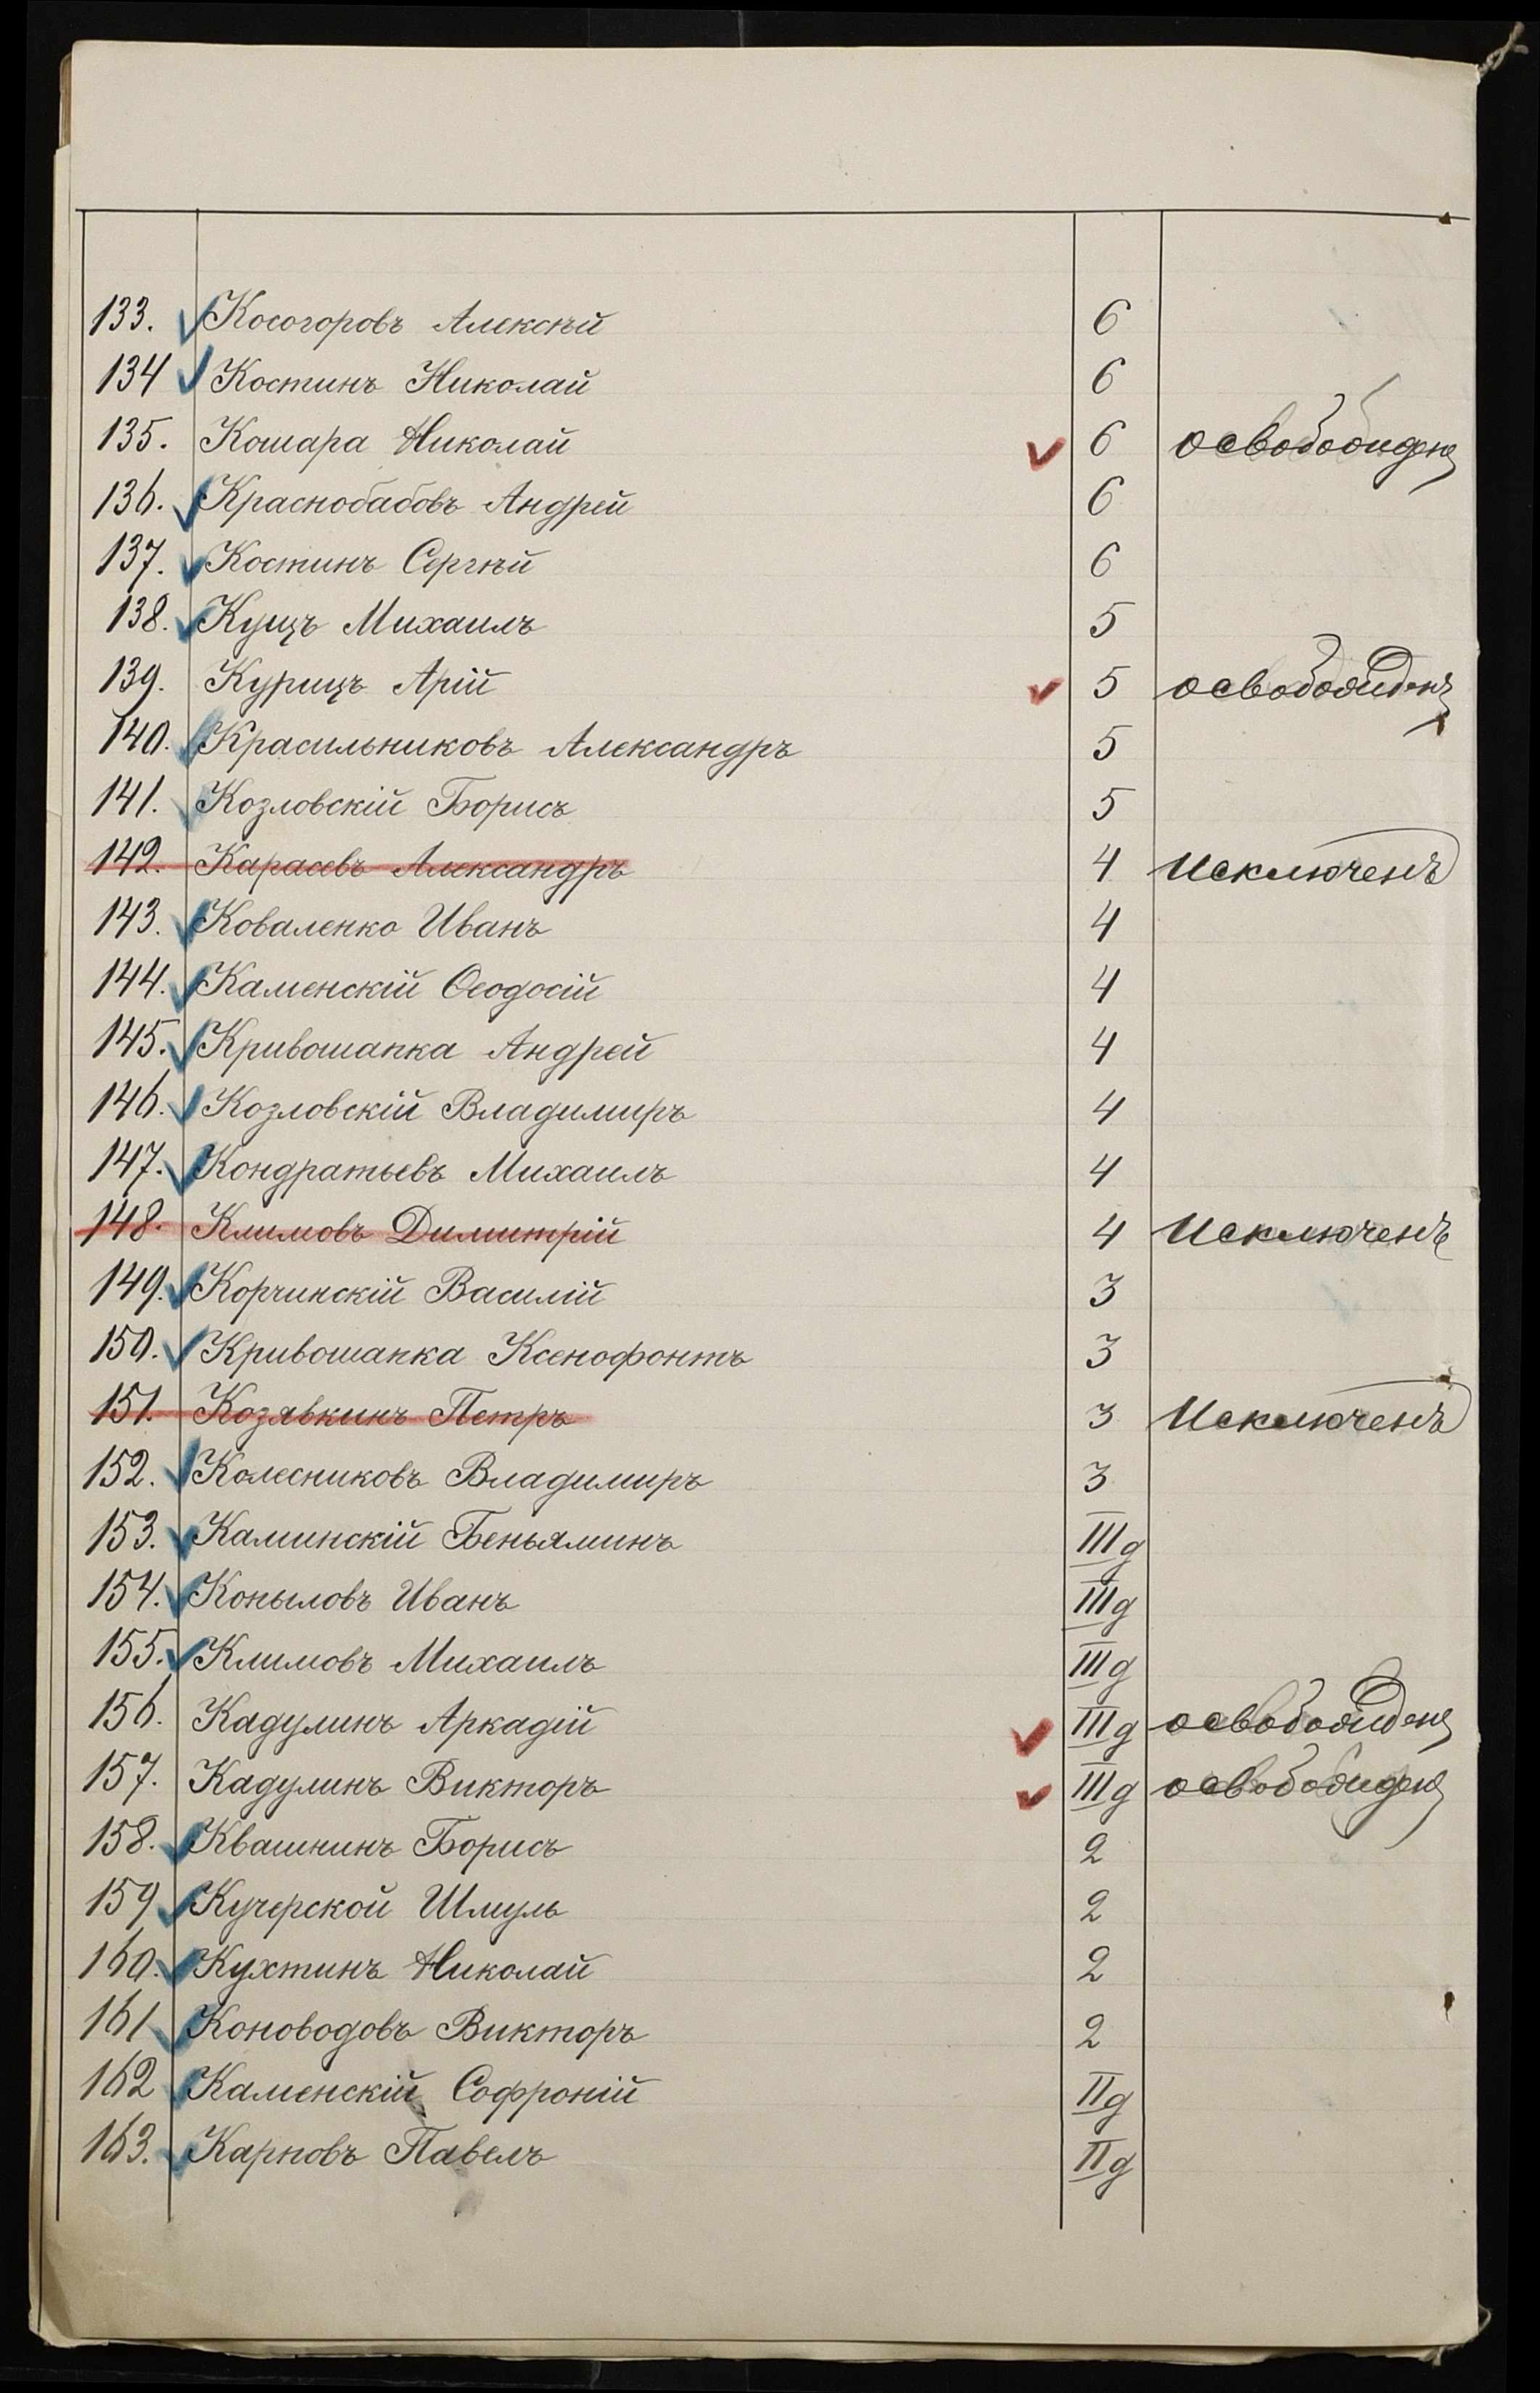 133. Косогоровъ Алексѣй 6
134 Костинъ Николай 6
135. Кошара Николай 6 освобожденъ
136. Краснобабовъ Андрей 6
137. Костинъ Сергѣй 6
138. Кущъ Михаилъ 5
139. Курицъ Арій 5 освобожденъ
140. Красильниковъ Александръ 5
141. Козловскій Борисъ 5
142. Карасевъ Александръ 4 Исключенъ
143. Коваленко Иванъ 4
144. Каменскій Ѳеодосій 4
145. Кривошапка Андрей 4
146. Козловскій Владимиръ 4
147. Кондратьевъ Михаилъ 4
148. Климовъ Димитрій 4 Исключенъ
149. Корчинскій Василій 3
150. Кривошапка Ксенофонтъ 3
151. Козявкинъ Петръ 3 Исключенъ
152. Колесниковъ Владимиръ 3
153. Каминскій Беньяминъ III д
154. Копыловъ Иванъ III д
155. Климовъ Михаилъ III д
156. Кадулинъ Аркадій III д освобожденъ
157. Кадулинъ Викторъ III д освобожденъ
158. Квашнинъ Борисъ 2
159 Кучерской Шмуль 2
160. Кухтинъ Николай 2
161 Коноводовъ Викторъ 2
162 Каменскій Софроній II д
163. Карповъ Павелъ II д